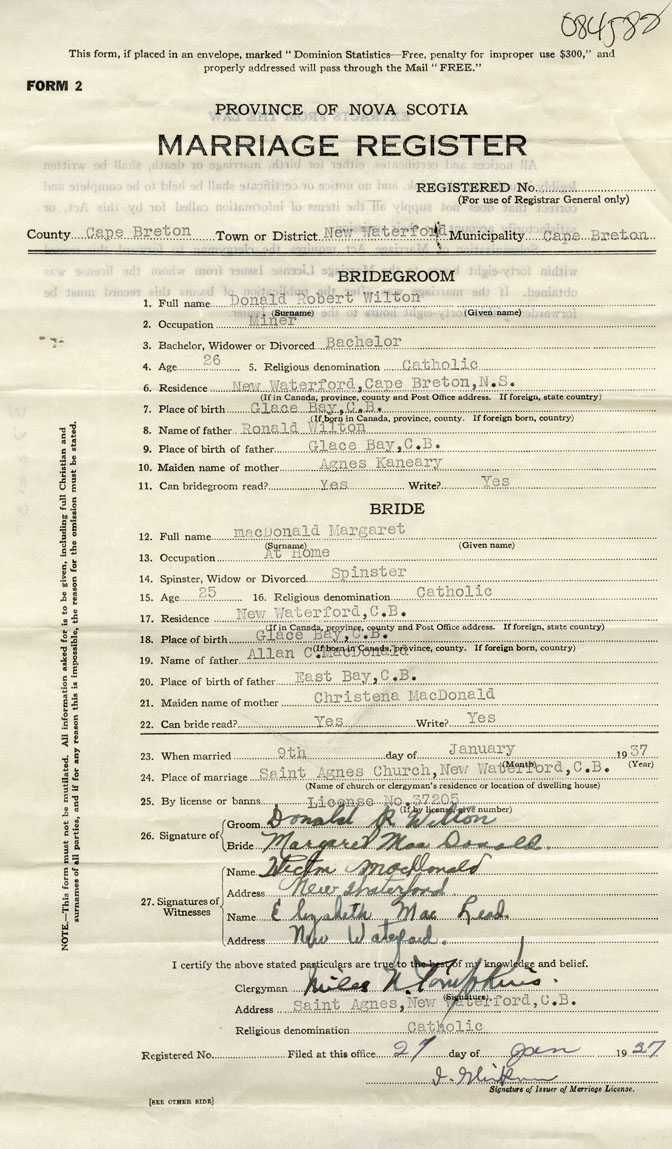 084582
This form, if placed in an envelope, marked "Dominion Statistics—Free, penalty for improper use $300," and
properly addressed will pass through the Mail "FREE."
FORM 2
PROVINCE OF NOVA SCOTIA
MARRIAGE REGISTER
REGISTERED No.
(For use of Registrar General only)
County Cape Breton Town or District New Waterford Municipality Cape Breton
BRIDEGROOM
1. Full name Donald Robert Wilton
(Surname) (Given name)
2. Occupation Miner
3. Bachelor, Widower or Divorced Bachelor
4. Age 26 5. Religious denomination Catholic
6. Residence New Waterford,Cape Breton,N.S.
(If in Canada, province, county and Post Office address. If foreign, state country)
7. Place of birth Glace Bay,C.B.
(If born in Canada, province, county. If foreign born, country)
8. Name of father Ronald Wilton
9. Place of birth of father Glace Bay,C.B.
10. Maiden name of mother Agnes Kaneary
11. Can bridegroom read? Yes Write? Yes
BRIDE
12. Full name macDonald Margaret
(Surname) (Given name)
13. Occupation At Home
14. Spinster, Widow or Divorced Spinster
15. Age 25 16. Religious denomination Catholic
17. Residence New Waterford,C.B.
(If in Canada, province, county and Post Office address. If foreign, state country)
18. Place of birth Glace Bay,C.B.
(If born in Canada, province, county. If foreign born, country)
19. Name of father Allan C.MacDonald
20. Place of birth of father East Bay,C.B.
21. Maiden name of mother Christena MacDonald
22. Can bride read? Yes Write? Yes
23. When married 9th day of January 1937
(Month) (Year)
24. Place of marriage Saint Agnes Church,New Waterford,C.B.
(Name of church or clergyman's residence or location of dwelling house)
25. By license or banns License No.37205
(If by license, give number)
26. Signature of
Groom Donald R Wilton
Bride Margaret Mac Donald.
27. Signatures of Witnesses
Name MacDonald
Address New Waterford
Name Elizabeth Mac Leod
Address New Waterford.
I certify the above stated particulars are true to the best of my knowledge and belief.
Clergyman Miles N. Tompkins.
(Signature)
Address Saint Agnes,New Waterford,C.B.
Religious denomination Catholic
Registered No. Filed at this office 27 day of Jan 1937
Signature of Issuer of Marriage License.
[SEE OTHER SIDE]
NOTE.—This form must not be mutilated. All information asked for is to be given, including full Christian and
surnames of all parties, and if for any reason this is impossible, the reason for the omission must be stated.